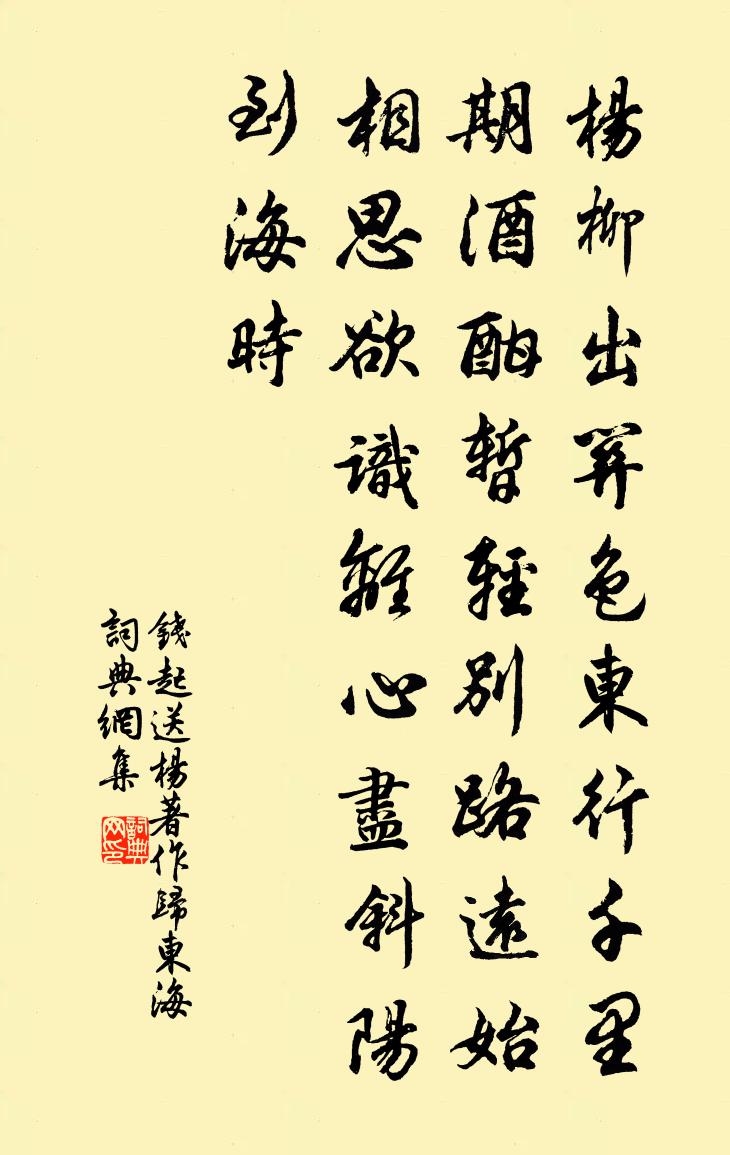 楊柳出關色東行千里
期酒酣暫輕別路遠始
相思欲識離心盡斜陽
到海時
錢起送楊著作歸東海
詞典網集
詞典網印